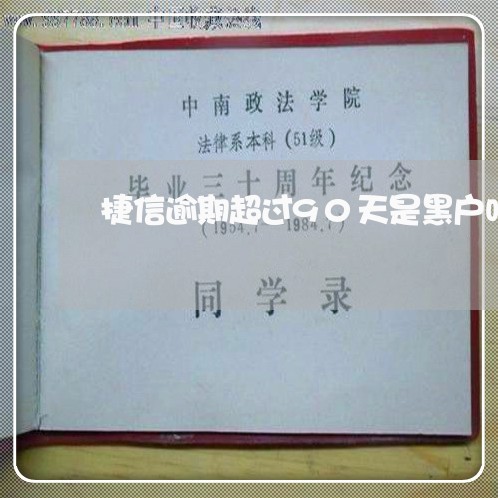 中国收藏热线
中南政法学院
法律系本科(51级)
毕业三十周年纪念
捷信逾期超过90天是黑户
(1954.7 1984.7)
同学录